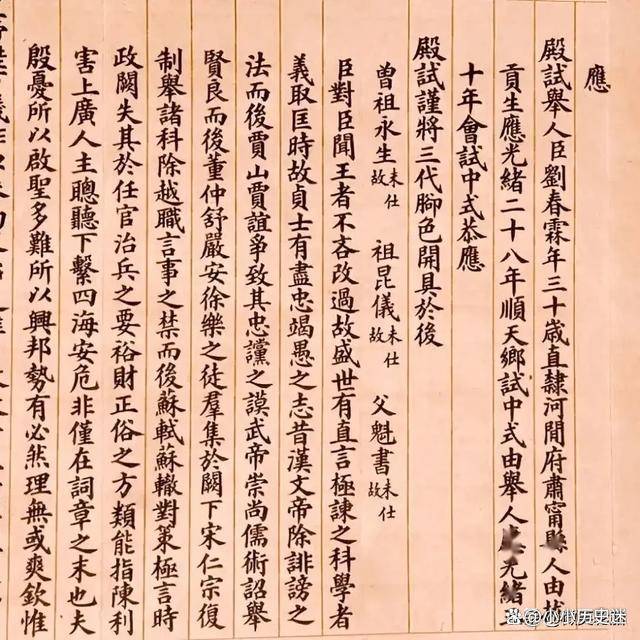 應
殿試舉人臣劉春霖年三十歲直隸河閒府肅甯縣人由
貢生應光緒二十八年順天鄉試中式由舉人應光緒
十年會試中式恭應
殿試謹將三代腳色開具於後
曾祖永生未仕故 祖昆儀未仕故 父魁書未仕故
臣對臣聞王者不吝改過故盛世有直言極諫之科學者
義取匡時故貞士有盡忠竭愚之志昔漢文帝除誹謗之
法而後賈山賈誼爭致其忠讜之謨武帝崇尚儒術詔舉
賢良而後董仲舒嚴安徐樂之徒羣集於闕下宋仁宗復
制舉諸科除越職言事之禁而後蘇軾蘇轍對策極言時
政闕失其於任官治兵之要裕財正俗之方類能指陳利
害上廣人主聰聽下繫四海安危非僅在詞章之末也夫
殷憂所以啟聖多難所以興邦勢有必然理無或爽欽惟
@小故历史迷